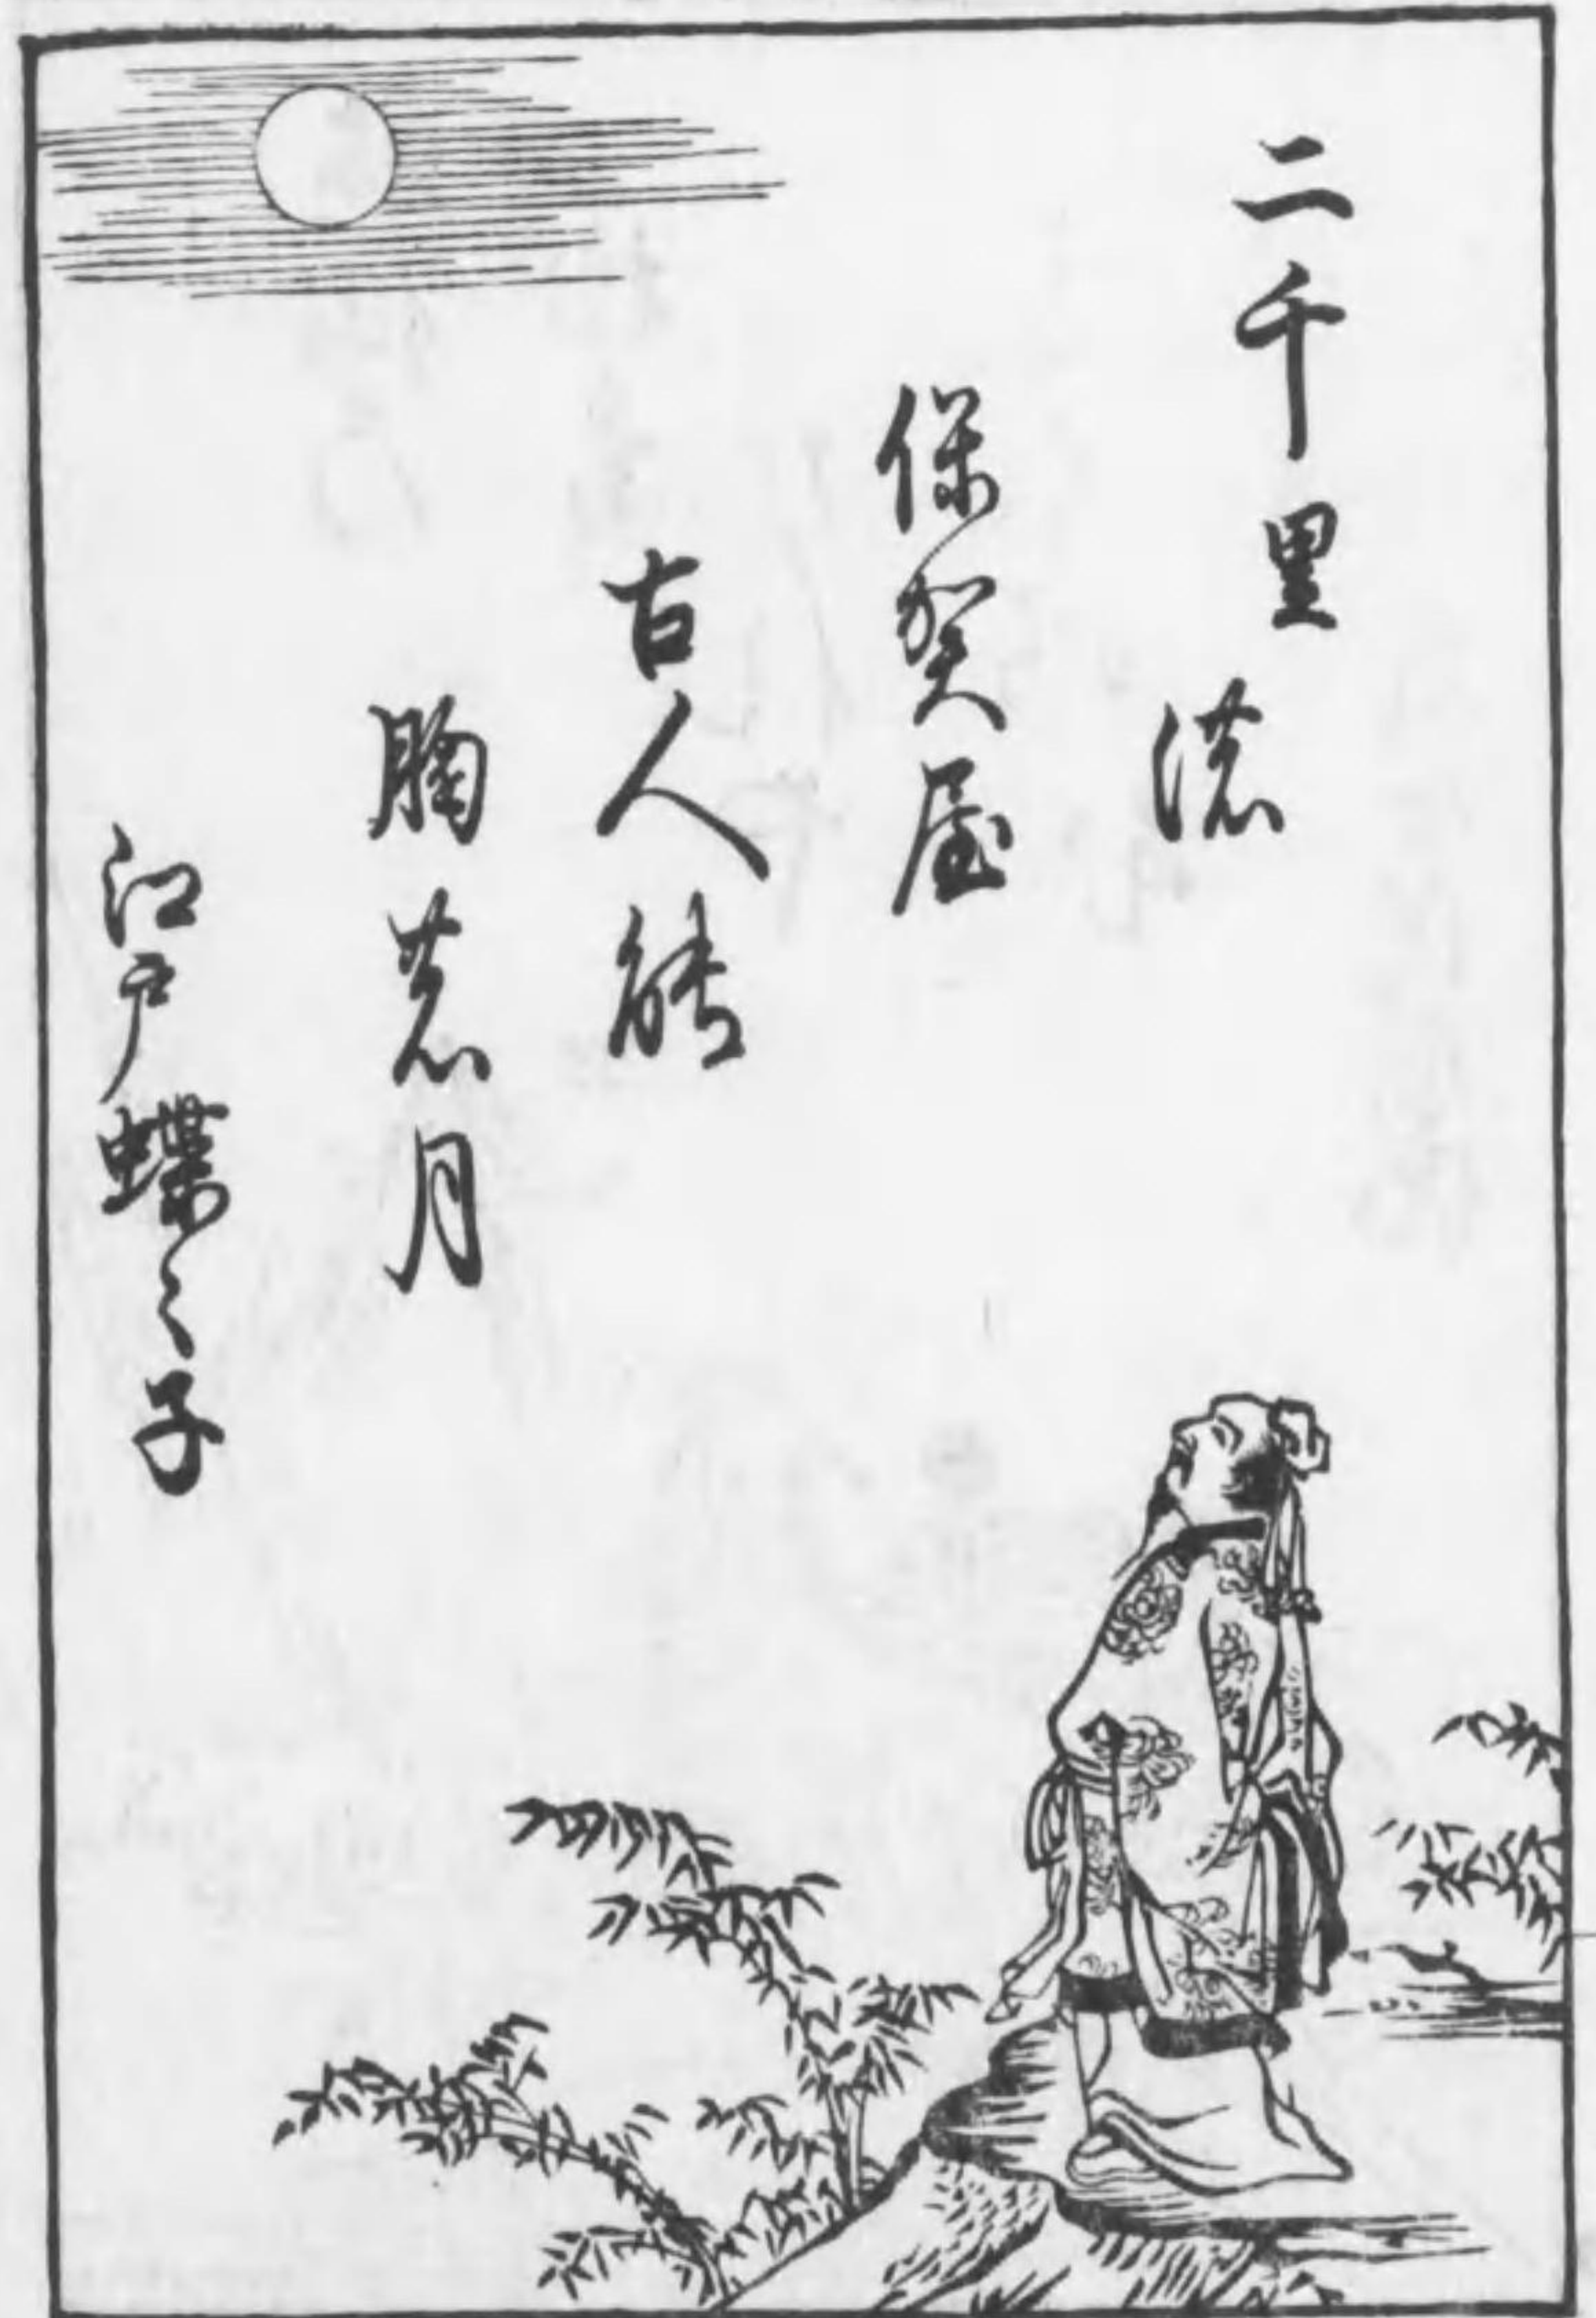 二千里濃
保賀屋
古人能
胸農月
江戸蝶々子